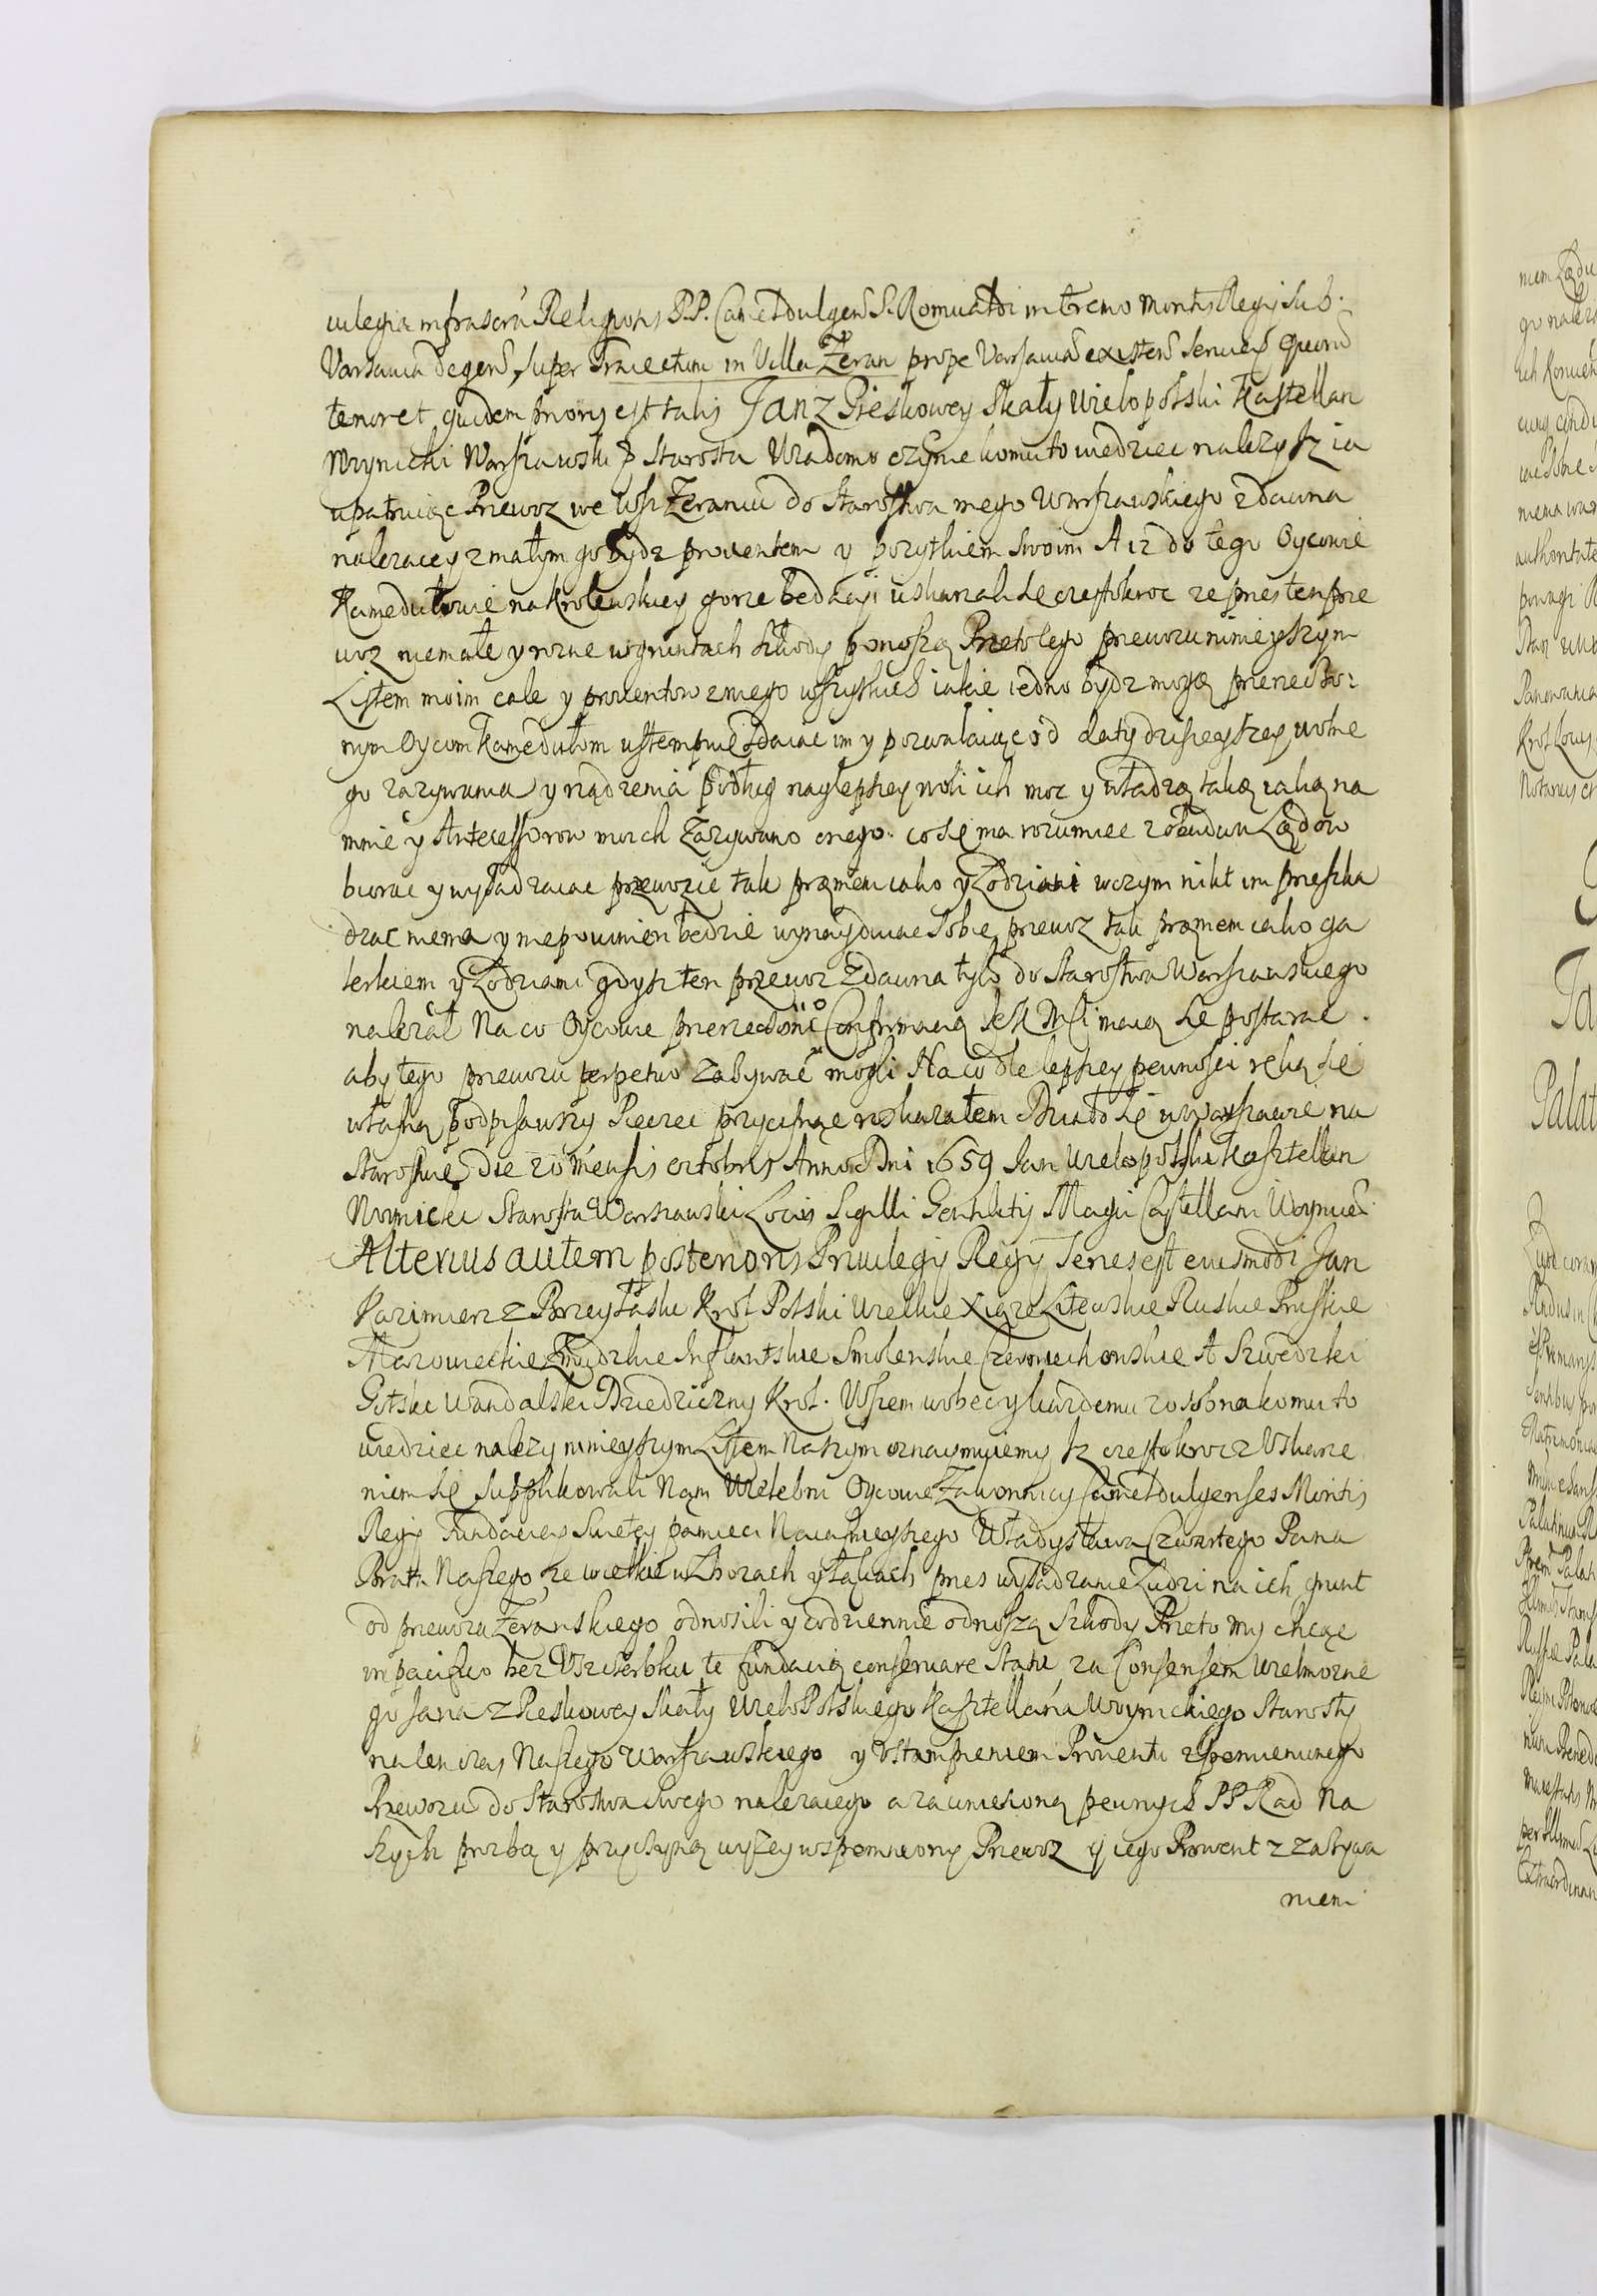 vilegia infrascrā Religionis P.P. Cameldulgen S. Romualdi in Eremo Montis Regij sub
Varsavia degen, super Traiectum in Villa Zeran prope Varsaviā existen Servien Quorū
tenor et quidem prioris est talis Jan z Pieskowey Skały Wielopolski Kasztellan
Woynicki Warszawski p Starosta Wiadomo czynie komu to wiedziec nalezy Jz ia
upatruiąc Przewoz we Wsi Zeraniu do Starostwa mego Warszawskiego zdawna
nalezacey z małym go bydz prowentem y pozytkiem swoim A iz do tego Oycowie
Kamedułowie na Krolewskiey gorze będacyi uskarzali sie częstokroc ze przes ten prze
woz niemałe y rozne w gruntach szkody ponoszą Przeto tego przewozu ninieyszym
Listem moim cale y prowentow z niego wszytkich iakie iedno bydz mogą przerzeczo:
nym Oycom Kamedułom ustempuię zdaiac im y pozwalaiąc od daty dzisieyszey wolne
go zazywania y rządzenia podług naylepszey woli ich moc y władzą taką iaką na
mnie y Antecessorow moich Zazywano onego. co się ma rozumiec z obudwu Lądow
biorac y wysadzaiac przewozic tak promem iako y Łodziami w czym nikt im przeszka
dzac niema y niepowinien bedzie wynaydowac sobie przewoz tak promem iako ga
lerkiem y Łodziami gdysz ten przewoz zdawna tylo do Starostwa Warszawskiego
nalezał Na co Oycowie przerzeczoni Confirmacią JeK Mści maią się postarac.
aby tego przewozu perpetuo zazywac mogli Na co dle lepszey pewnosci ręką się
własną podpisawszy Pieczec przycisnąc roskazałem Działo się w Warszawie na
Starostwie die 20 mensis octobris Anno Dni 1659 Jan Wielopolski Kasztellan
Woynicki Starosta Warszawski Locus Sigilli Gentilitij Magci Castellani Woynicen
Alterius autem posterioris Privilegij Regij Series est eiusmodi Jan
Kazimierz z Bozey Łaski Krol Polski Wielkie Xiąze Litewskie Ruskie Pruskie
Mazowieckie Zmudzkie Inflantskie Smolenskie Czerniechowskie A Szwedzki
Gotski Wandalski Dziedziczny Krol. Wszem wobec y kazdemu zosobna komu to
wiedziec nalezy ninieyszym Listem Naszym oznaymuiemy Jz częstokroc z Uskarze
niem się supplikowali Nam Wielebni Oycowie Zakonnicy Camaldulgenses Montis
Regij Fundaciey Swietey pamieci Naiasnieyszego Władysława Czwartego Pana
Brata Naszego ze wielkie w Zbozach y Łąkach przes wysadzanie Ludzi na ich grunt
od przewozu Zeranskiego odnosili y codziennie odnoszą szkody Przeto my chcąc
in pacifico bez Uszczerbku te fundacią conservare Statu za Consensem Wielmozne
go Jana z Pieskowey Skały Wielopolskiego Kasztellana Woynickiego Starosty
na ten czas Naszego Warszawskiego y Ustampieniem Prowentu zpomienionego
Przewozu do Starostwa Swego nalezacego a za uniesioną pewnych PP Rad Na
szych prozbą y przyczyną wyzey wspomniony Przewoz y iego Prowent z zazywa
niem